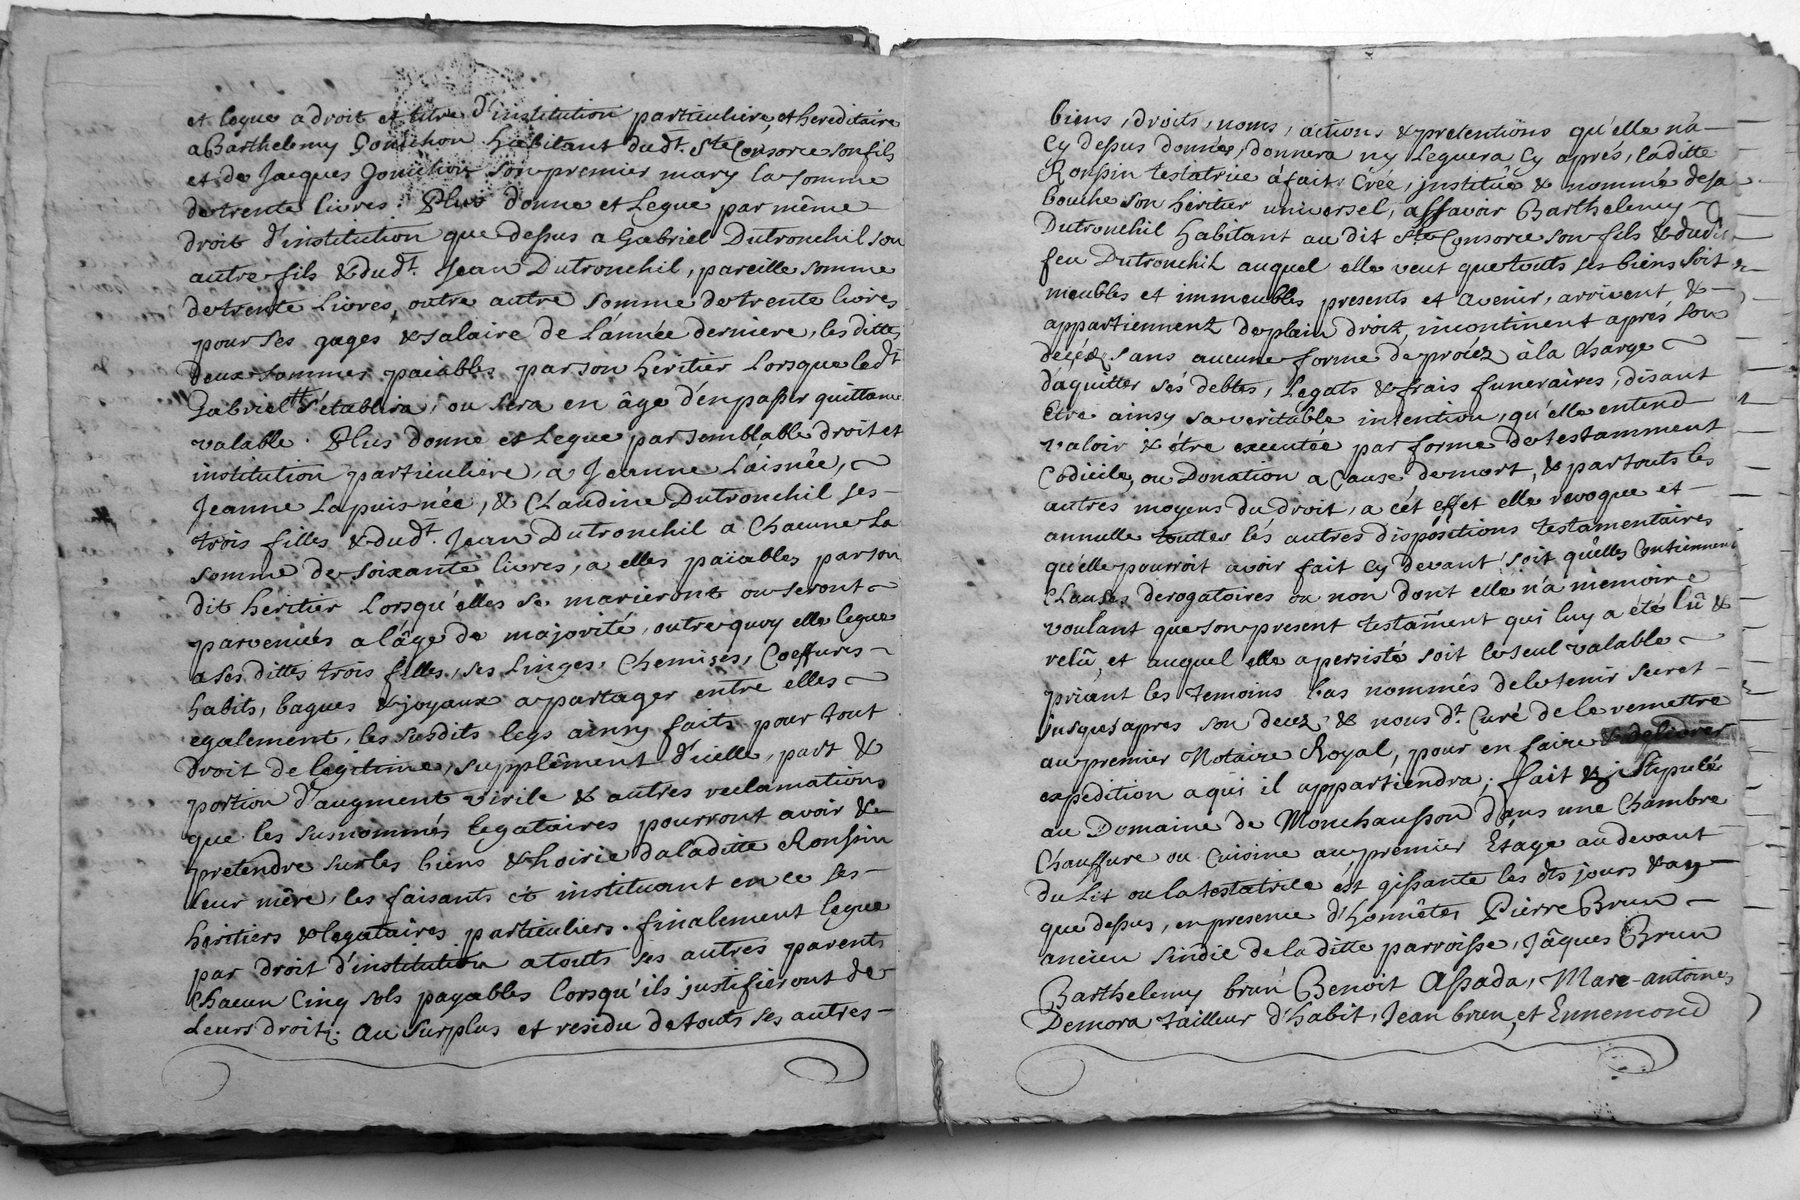 et legue a droit et titre d'institution particuliere, et hereditaire
a Barthelemy Gonichon habitant dudt. Ste Consorce son fils
et de Jacques Gonichon son premier mary la somme
de trente livres. Plus donne et Legue par même
droit d'institution que dessus a Gabriel Dutronchil son
autre fils & dudt. Jean Dutronchil, pareille somme
de trente Livres, outre autre somme de trente livres
pour ses gages & salaire de L'année derniere, les ditte
deux sommes paiables par son héritier Lorsque ledt
Gabriel s'etablira, ou sera en âge d'en passer quittance
valable. Plus donne et Legue par semblable droit et
institution particuliere, a Jeanne Laisnée,
Jeanne La puisnée, & Claudine Dutronchil ses
trois filles & dudt. Jean Dutronchil a Chacune La
somme de soixante livres, a elles païables par son
dit héritier Lorsqu'elles se marieront ou seront
parvenuës a l'âge de majorité, outre quoy elle legue
a ses dittes trois filles, ses Linges, Chemises, Coeffures
habits, bagues & joyaux a partager entre elles
egalement, les susdits legs ainsy faits pour tout
Droit de legitime, supplêment d'icelle, part &
portion d'augment virile & autres reclamations
que les susnommés legataires pourront avoir &
pretendre sur les biens & hoirie da laditte Ronssin
leur mêre, les faisants et instituant en ce ses
héritiers & legataires particuliers. finalement legue
par droit d'institution a touts ses autres parents
Chacun Cinq sols payables lorsqu'ils justifieront de
Leurs droits. au surplus et residu de touts ses autres
biens, droits, noms, actions & pretentions qu'elle n'a
Cy dessus donnés, donnera ny Leguera Cy aprés, laditte
Ronssin testatrice à fait, Créé, institüé & nommé de sa
bouche son héritier universel, assavoir Barthelemy
Dutronchil habitant au dit Ste Consorce son fils & dudit
feu Dutronchil auquel elle veut que touts ses biens soit
meubles et immeubles presents et avenir, arrivent &
appartiennent de plain droit, incontinent aprés son
decéds sans aucune forme de procez à la Charge
d'aquitter ses debtes, Legats & frais funeraires, disant
Etre ainsy sa veritable intention, qu'elle entend
valoir & être executée par forme de testamment
Codicile, ou Donation a Cause de mort, & par touts les
autres moyens du droit, a cét effet elle revoque et
annulle toutes lés autres dispositions testamentaires
qu'elle pourroit avoir fait Cy devant soit qu'elles Contiennent
Clauses derogatoires ou non dont elle n'a memoire
voulant que son present testament qui luy a été lû &
relû, et auquel elle a persisté soit le seul valable
priant les temoins bas nommés de le tenir secret
jusques apres son decez, & nous dt. Curé de le remettre
au premier Notaire Royal, pour en faire
expedition a qui il appartiendra; fait & stipulé
au Domaine de Monchausson dans une Chambre
Chauffure ou Cuisine au premier Etage au devant
du Lit ou la testatrice est gissante les dts jours & an
que dessus, en presence d'honnêtes Pierre Brun
ancien sindic de la ditte parroisse, Jâques Brun
Barthelemy brun Benoit Assada, Marc-antoine
Demora tailleur d'habit, Jean brun, et Ennemond